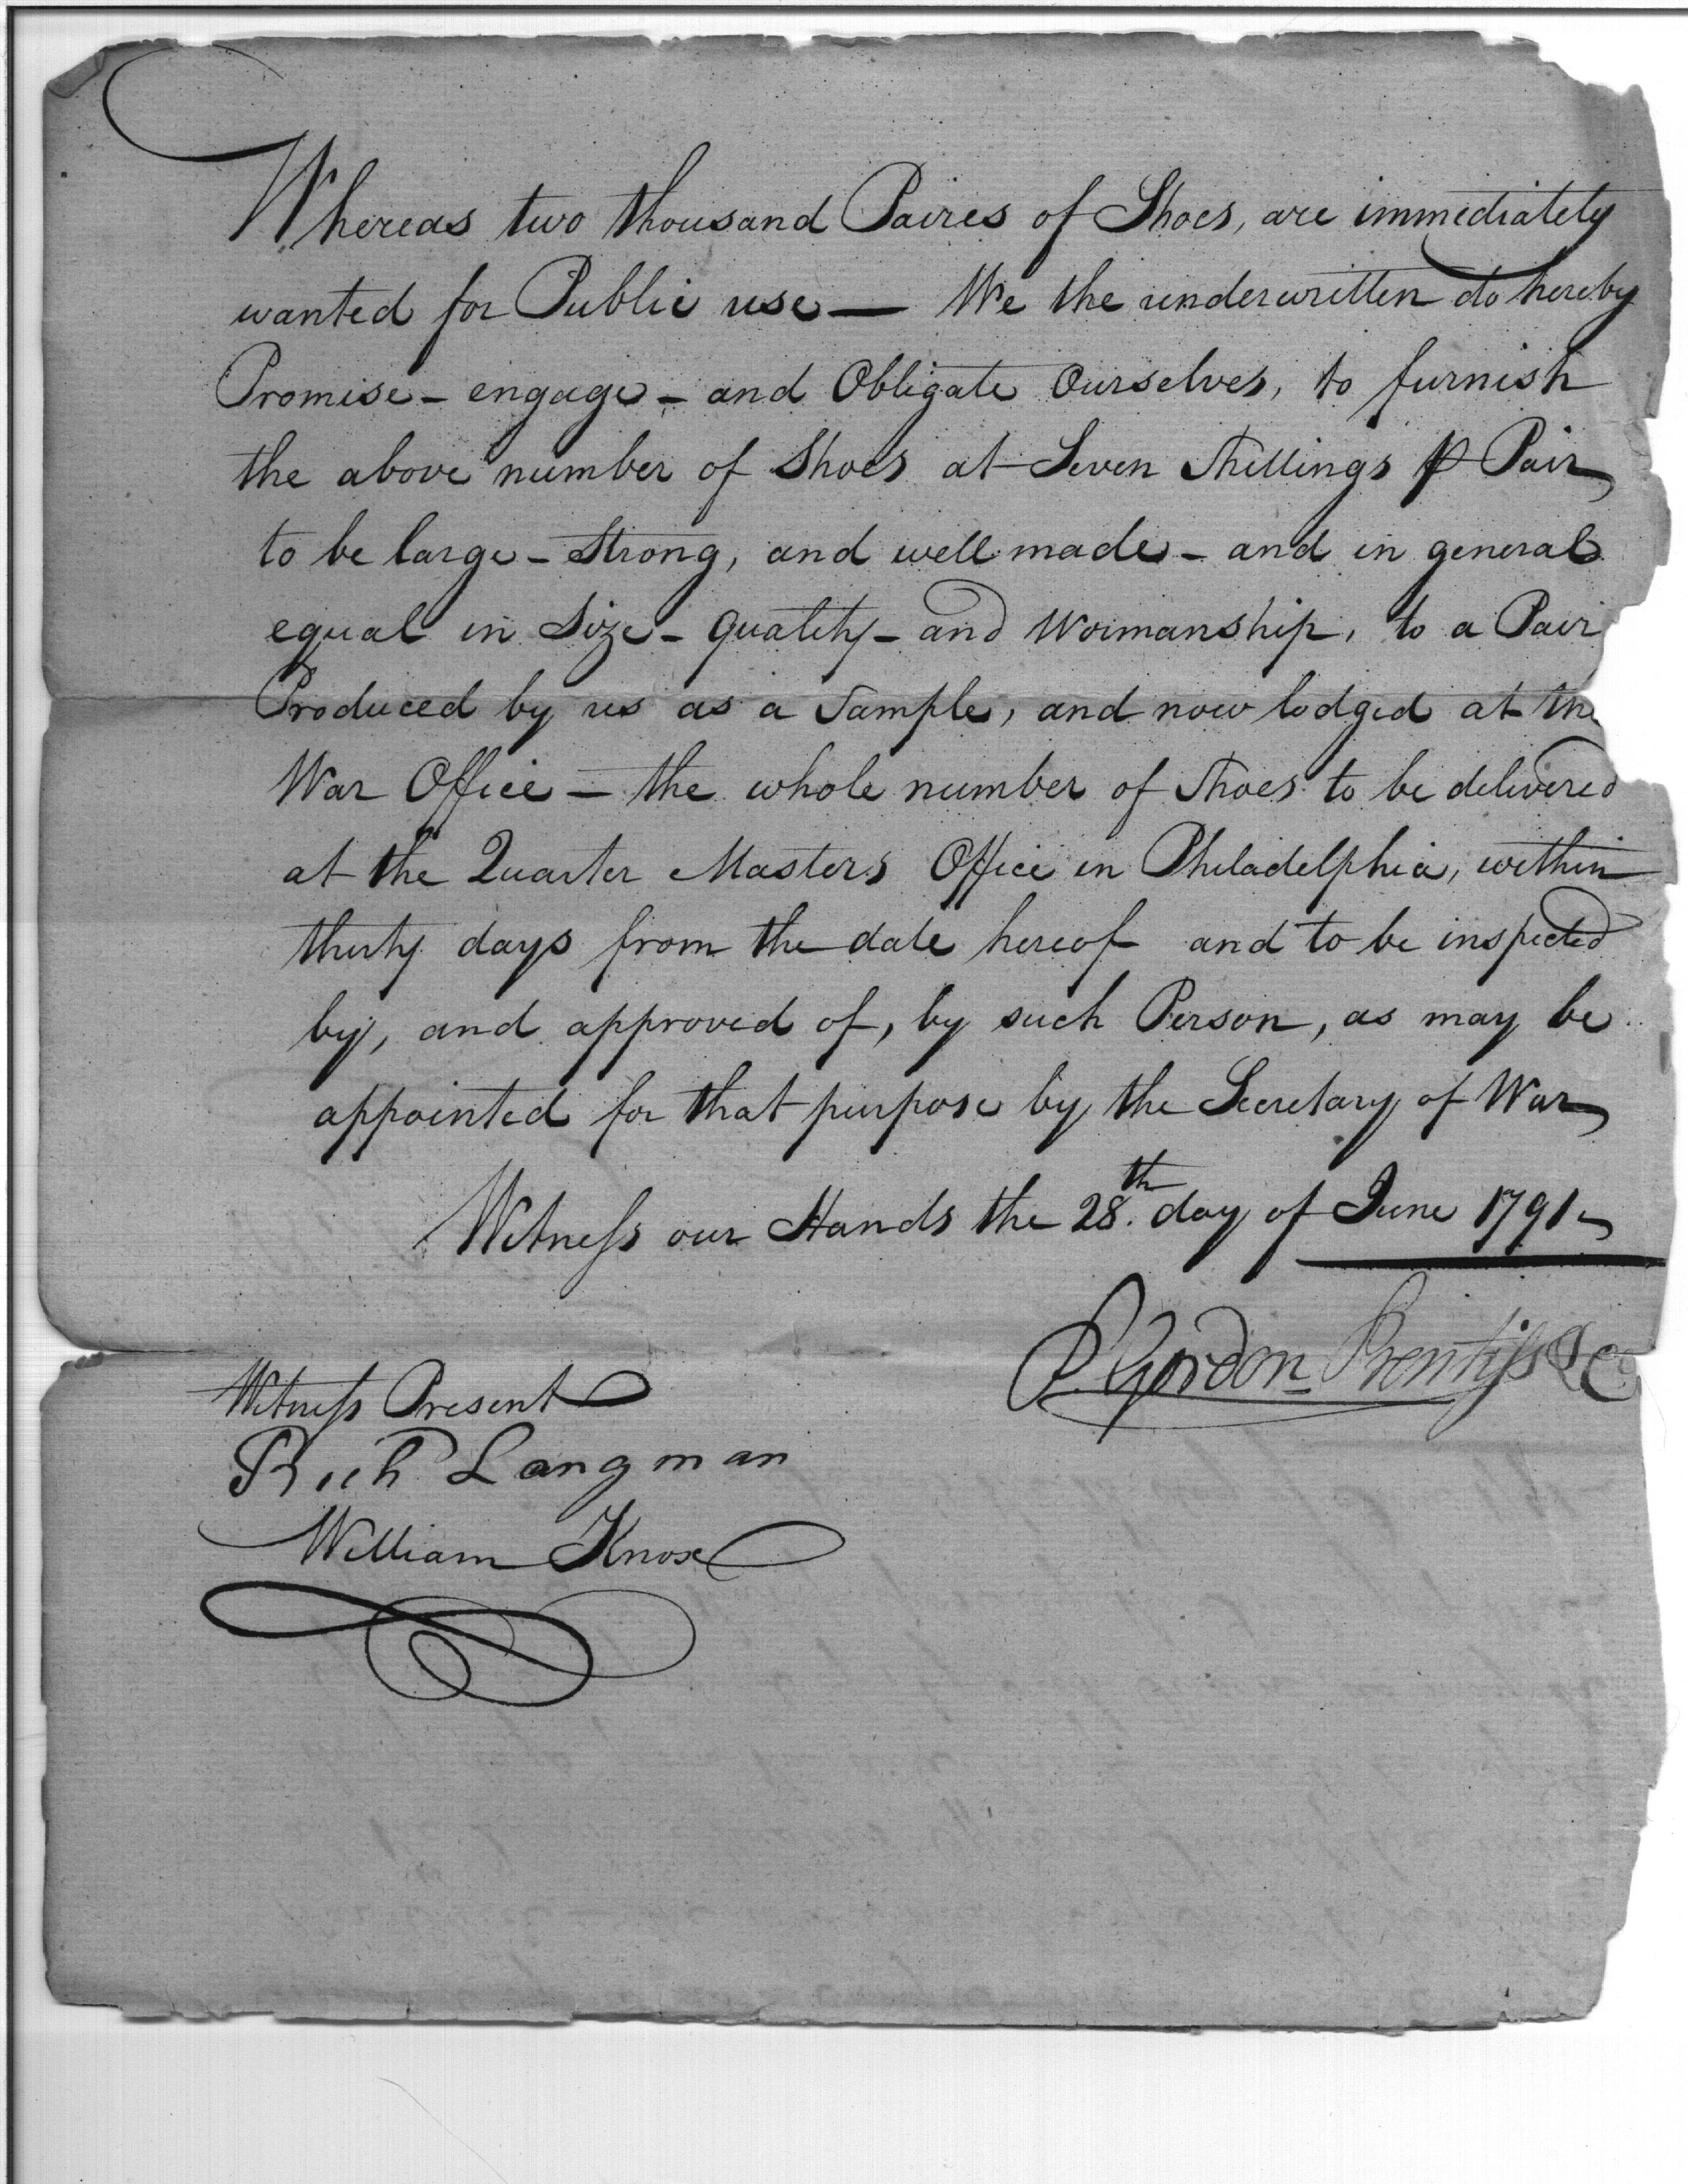 Whereas two thousand Paires of Shoes, are immediately
wanted for Public use — We the underwritten do hereby
Promise - engage - and Obligate Ourselves, to furnish
the above number of Shoes at Seven Shillings ⅌ Pair
to be large - Strong, and well made - and in general
equal in Size - quality - and Wormanship, to a Pair
Produced by us as a Sample, and now lodged at the
War Office — the whole number of Shoes to be delivered
at the Quarter Masters Office in Philadelphia, within
thirty days from the date hereof and to be inspected
by, and approved of, by such Person, as may be
appointed for that purpose by the Secretary of War
Witneſs our Hands the 28th. day of June 1791.
P. Gordon Prentiſs & Co
Witneſs Present
Richd Langman
William Knox